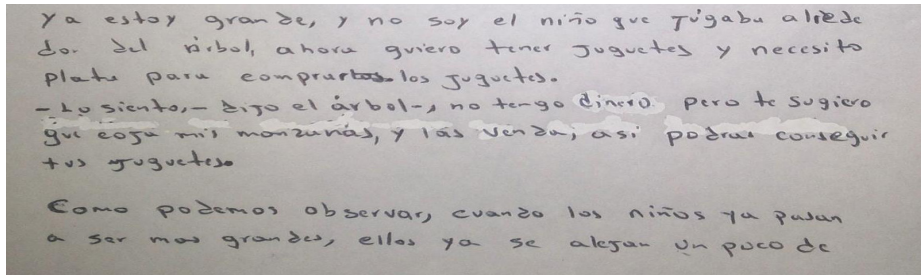 ya estoy grande, y no soy el niño que jugaba alrede
dor del árbol, ahora quiero tener juguetes y necesito
plata para comprar los juguetes.
- Lo siento, - dijo el árbol -, no tengo dinero pero te sugiero
que coja mis manzanas, y las venda, asi podras conseguir
tus juguetes.
Como podemos observar, cuando los niños ya pasan
a ser mas grandes, ellos ya se alejan un poco de